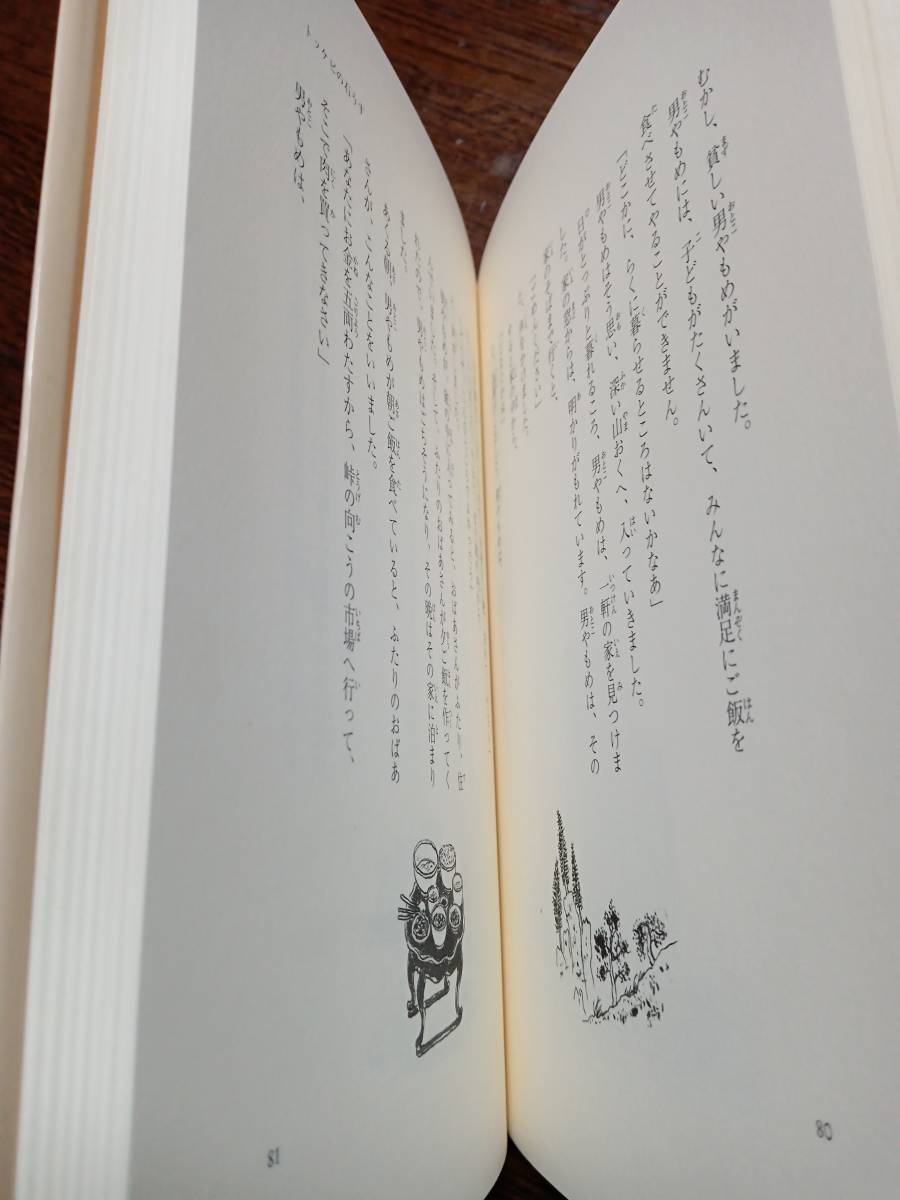 むかし、貧しい男やもめがいました。
男やもめには、子どもがたくさんいて、みんなに満足にご飯を
食べさせてやることができません。
「どこかに、らくに暮らせるところはないかなあ」
男やもめはそう思い、深い山おくへ、入っていきました。
日がとっぷりと暮れるころ、男やもめは、一軒の家を見つけま
した。家の窓からは、明かりがもれています。男やもめは、その
家のそばまで行くと、
「ごめんください」
80
おばあさんがふたり、住
ふたりのおばあさんが夕ご飯を作ってく
れたので、男やもめはごちそうになり、その晩はその家に泊まり
ました。
あくる朝、男やもめが朝ご飯を食べていると、ふたりのおばあ
さんが、こんなことをいいました。
「あなたにお金を五両わたすから、峠の向こうの市場へ行って、
そこで肉を買ってきなさい」
男やもめは、
トッケビの石うす
81